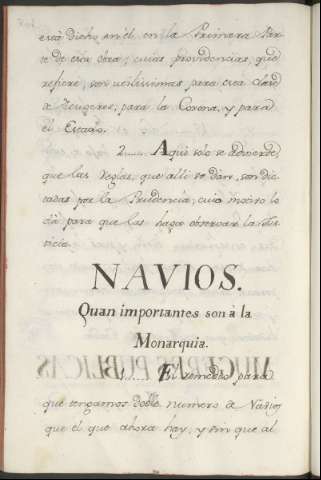 está dicho en él en la Primera Par-
te de esta obra; cuias providencias, que
refiere, son utilissimas para esta clase
de Mugeres, para la Corona, y para
el Estado.
2..... Aqui solo se advierte,
que las Reglas, que alli se dan, son dic-
tadas por la Prudencia; cuio
para que las haga observar la Jus-
ticia.
NAVIOS.
Quan importantes son à la
Monarquia.
1..... El remedio para
que tengamos doble numero de Navios
que el que ahora hay, y sin que al